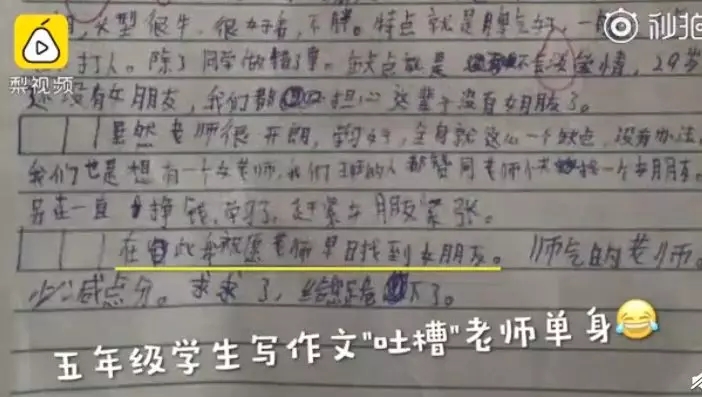 发型很牛，很好看，不胖。特点就是脾气好，一般
秒拍
打人。除了同学做错了事。缺点就是 不会谈爱情，29岁
梨视频
还没有女朋友，我们都 担心这辈子没有女朋友了。
虽然老师很开朗，学习好，全身就这么一个缺点，没有办法
我们也是想有一个女老师，我们班的人都赞同老师 找一个女朋友。
另在一直 挣钱，学习，赶紧女朋友紧张。
在 此我祝愿老师早日找到女朋友。 帅气的老师。
少减点分。求求了，
五年级学生写作文"吐槽"老师单身😂